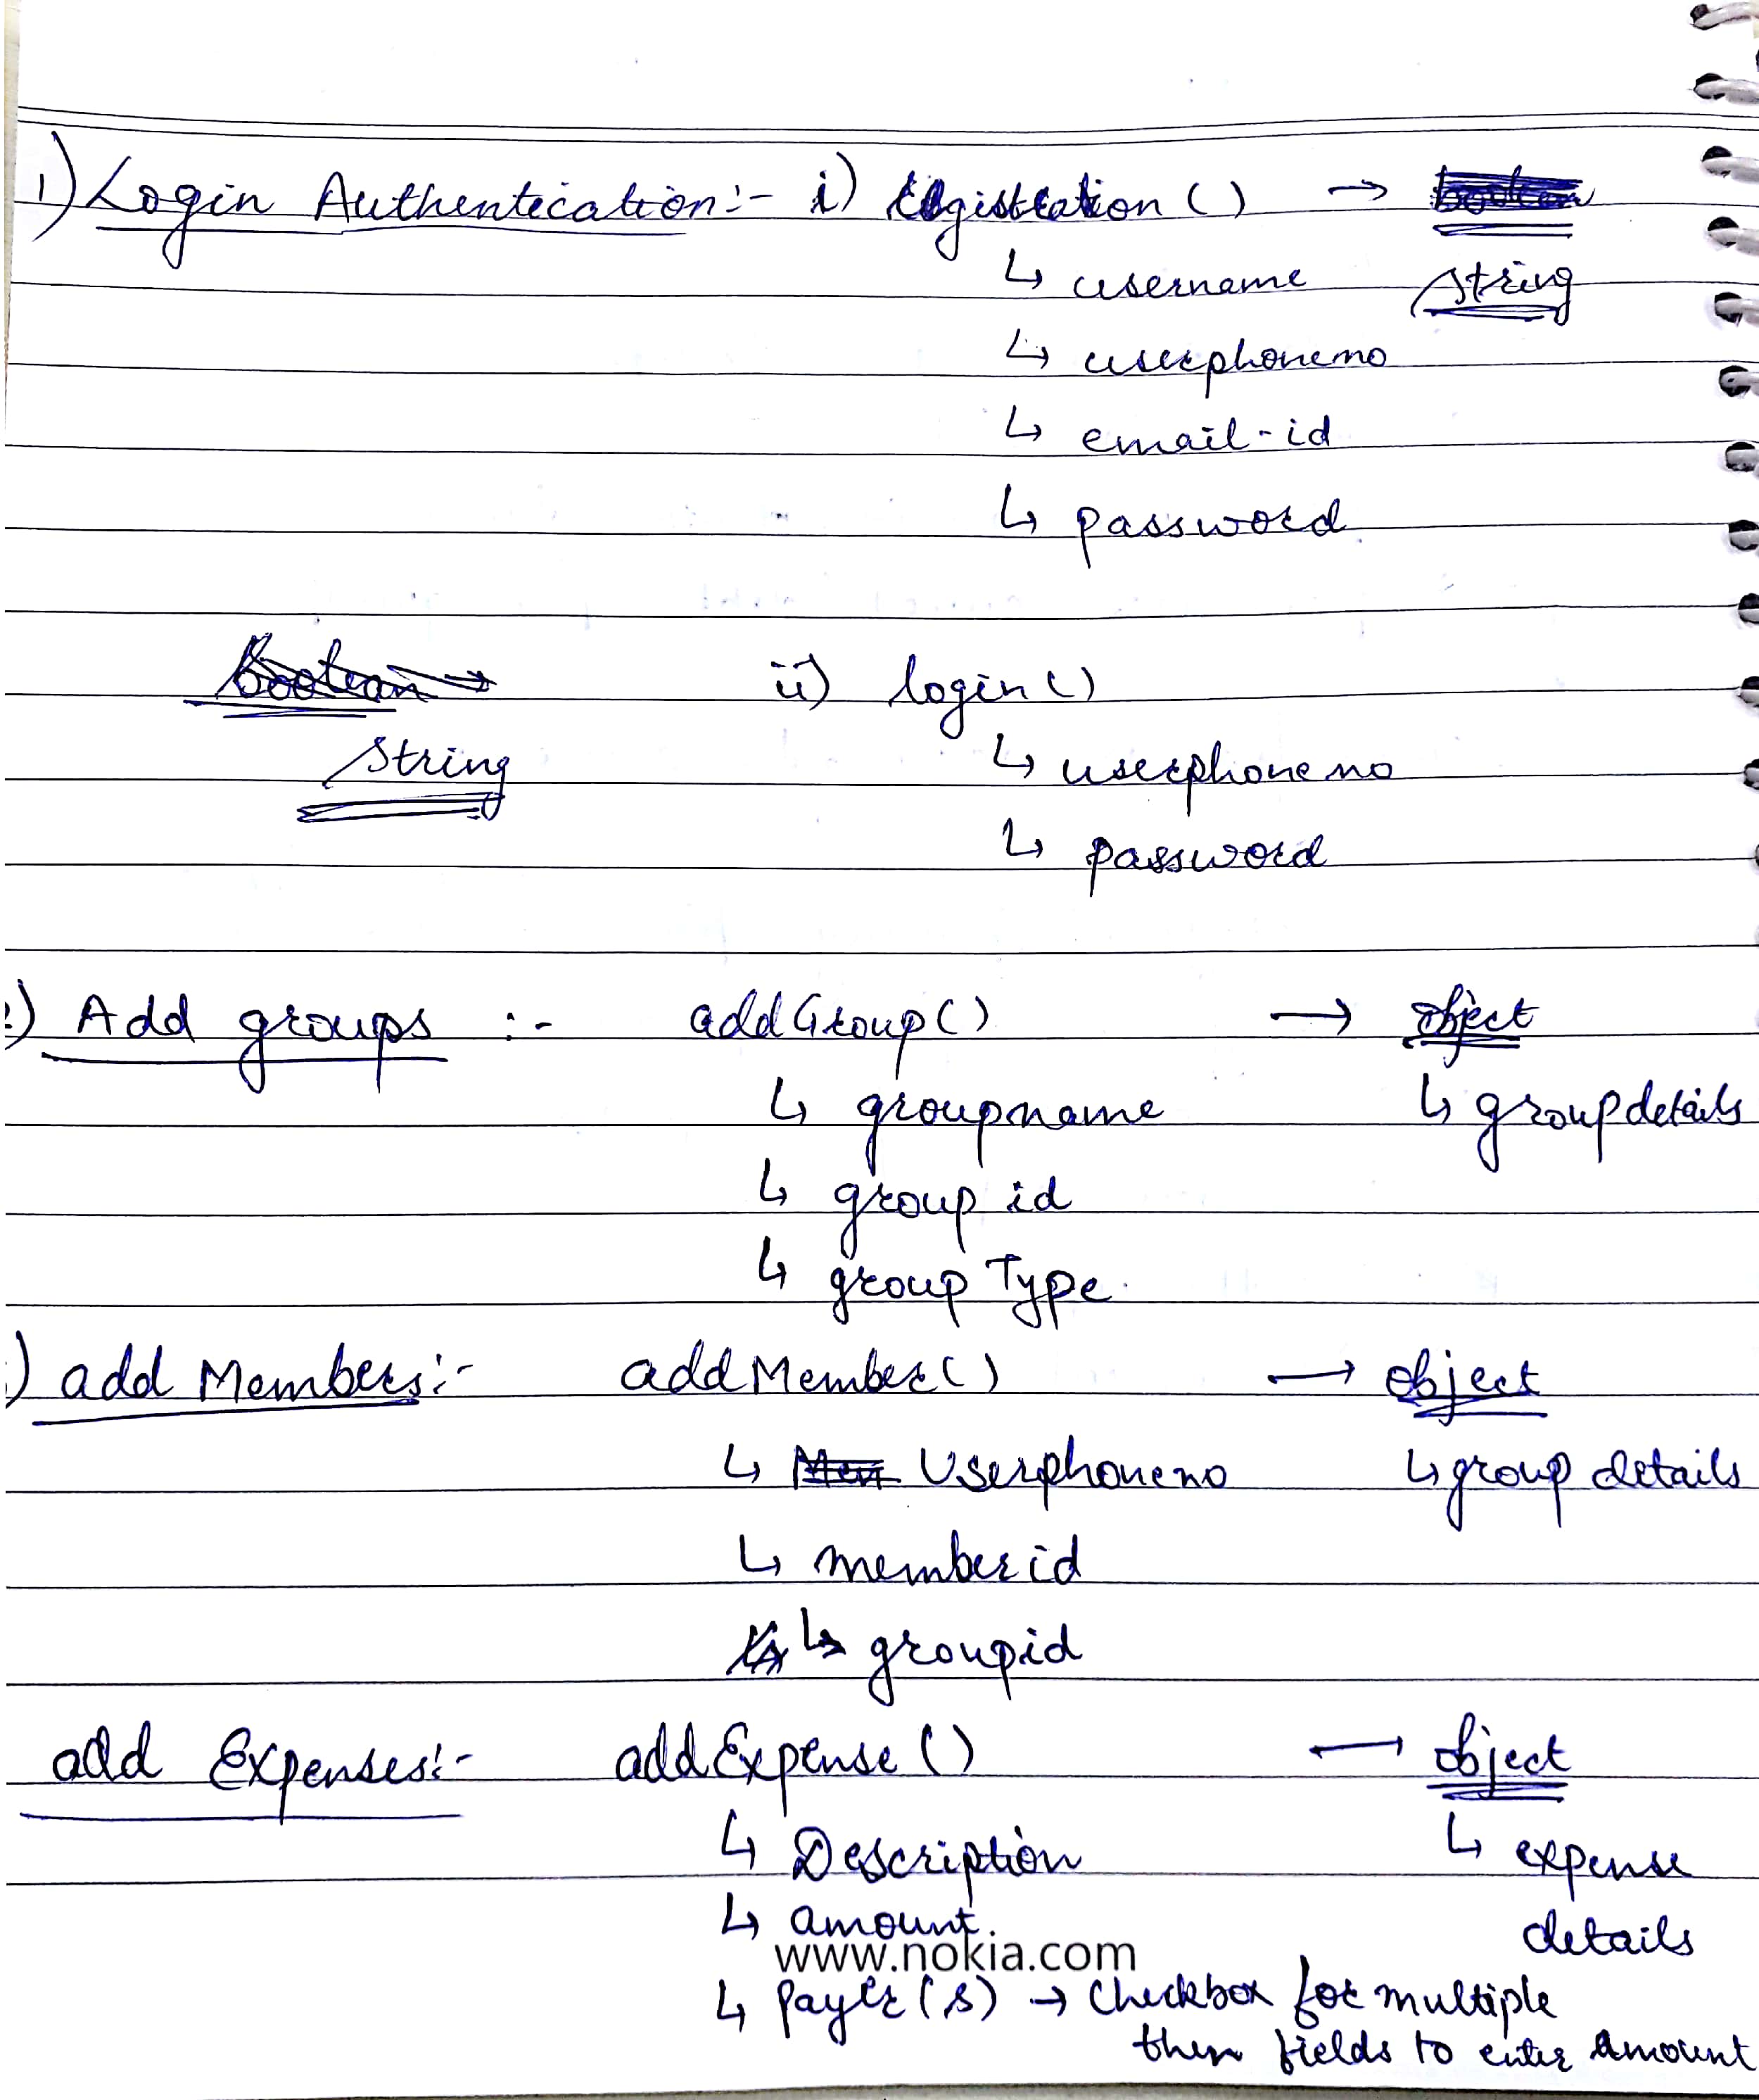 1) Login Authentication:- i) registration() →
↳ username string
↳ userphoneno
↳ email-id
↳ password
boolean → ii) login()
string ↳ userphoneno
↳ password
) Add groups :- addGroup() → object
↳ groupname ↳ groupdetails
↳ group id
↳ group Type
) add Members:- addMember() → object
↳ Userphoneno ↳ group details
↳ member id
↳ groupid
add Expenses:- addExpense() → object
↳ Description ↳ expense
↳ amount. details
www.nokia.com
↳ Payer(s) → Checkbox for multiple
then fields to enter Amount